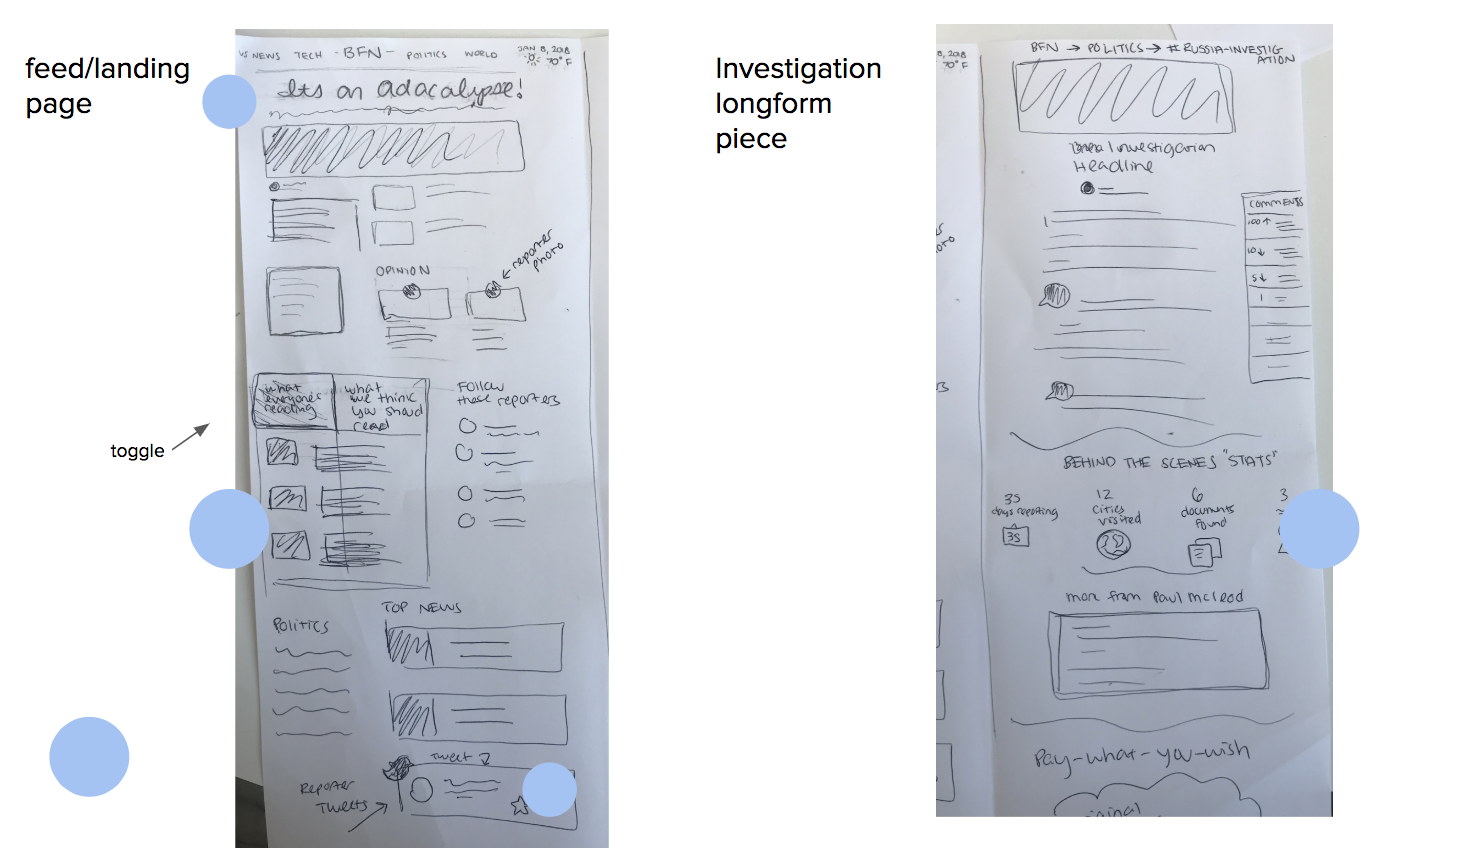 feed/landing
page
US NEWS TECH -BFN- POLITICS WORLD
JAN 8, 2018
70° F
Its an adacalypse!
OPINION
reporter
photo
what
everyone's
reading
what
we think
you should
read
Follow
these reporters
toggle
TOP NEWS
Politics
Tweet
Reporter
Tweets
Investigation
longform
piece
8, 2018
70° F
BFN → POLITICS → # RUSSIA-INVESTIG
ATION
Investigation
Headline
COMMENTS
100 ↑
10 ↓
5 ↓
1
BEHIND THE SCENES "STATS"
35
days reporting
35
12
cities
visited
6
documents
found
3
more from Paul mcleod
Pay-what-you-wish